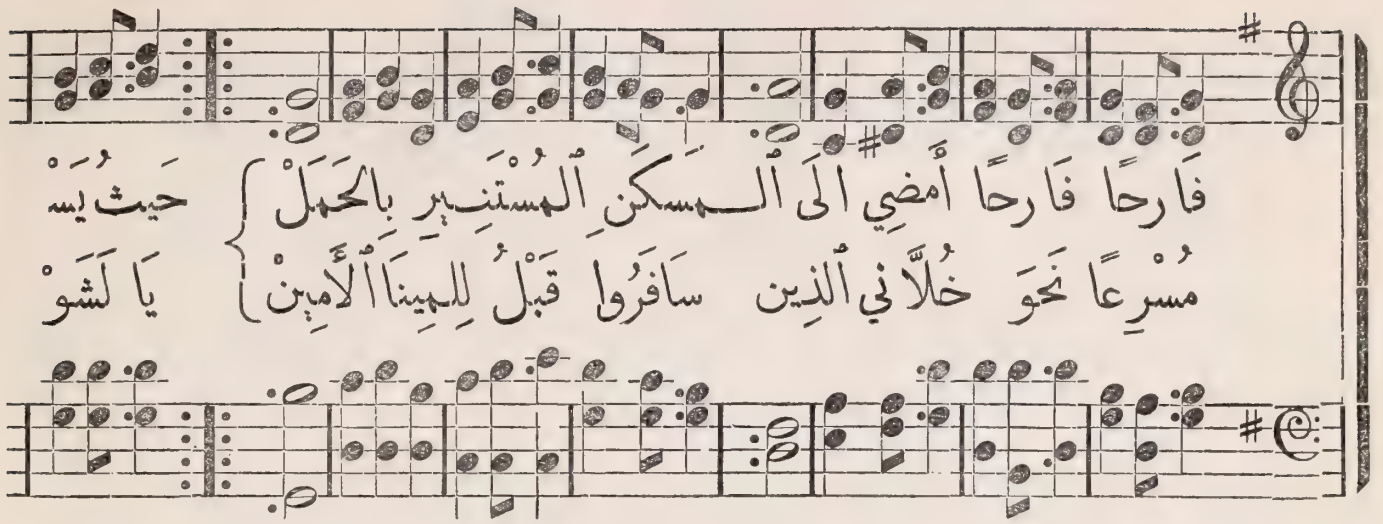 فَارِحًا فَارِحًا أَمضِي الَى ٱلـمَسكَنِ ٱلمُسْتَنِيرِ بِالحَمَلْ { حَيثُ يَسْ
مُسْرِعًا نَحوَ خُلاَّني ٱلذِين سَافَرُوا قَبْلُ لِلمِينَا ٱلأَمِينْ { يَا لَشَوْ